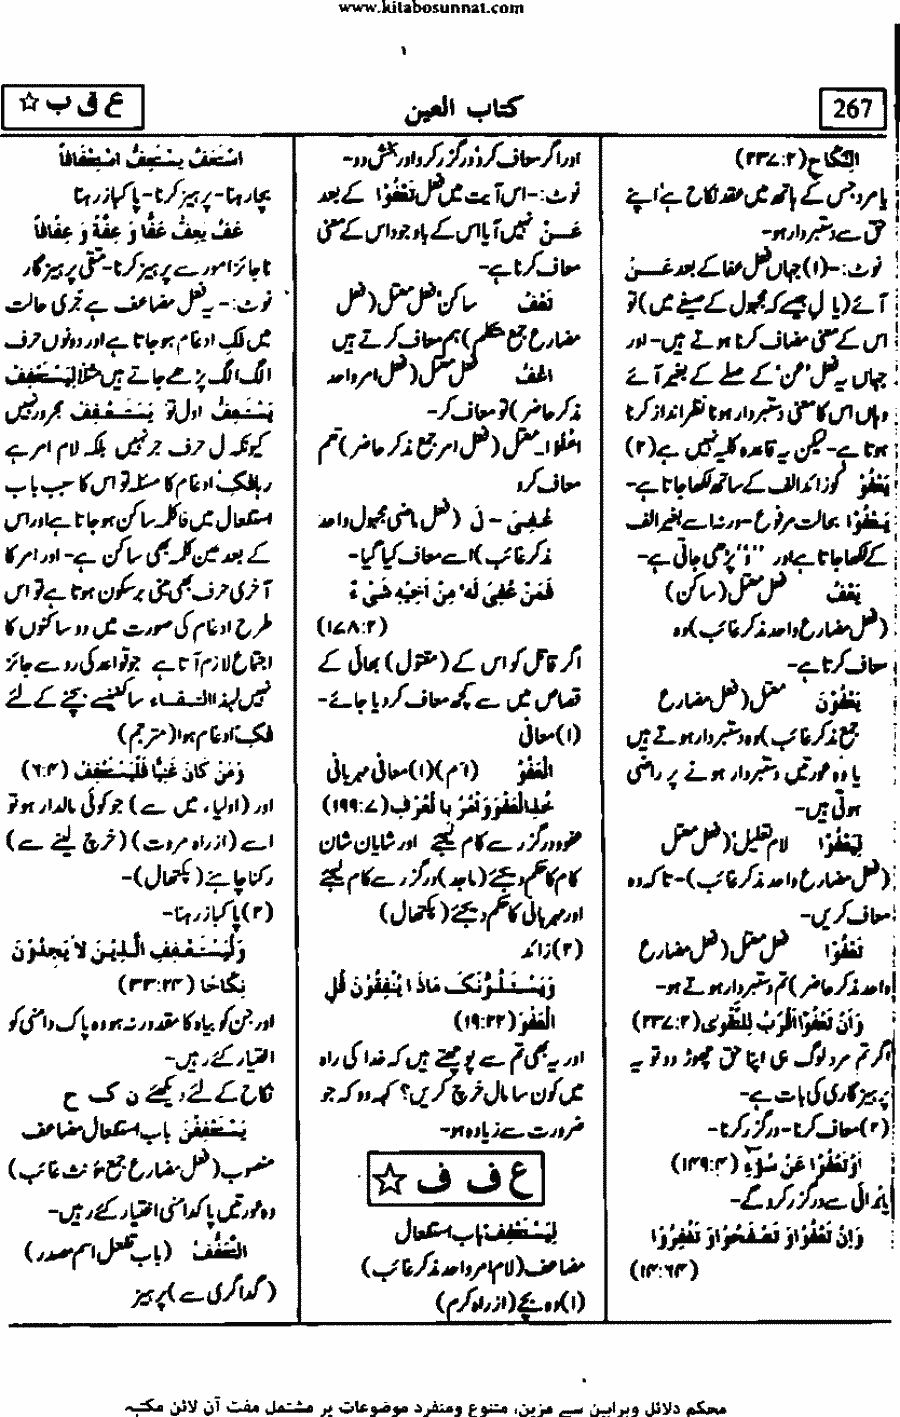 www.kitabosunnat.com
۱
267
کتاب العین
ع ف ب ☆
النِّكَاحِ(۲۳۷:۲)
یا مرد جس کے ہاتھ میں عقد نکاح ہے' اپنے
حق سے دستبردار ہو-
نوٹ:-(۱)جہاں فعل عفا کے بعد عَـنْ
آئے(یا لِ جیسے کہ مجہول کے صیغے میں)تو
اس کے معنی معاف کرنا ہوتے ہیں- اور
جہاں یہ فعل 'عن' کے صلے کے بغیر آئے
وہاں اس کا معنی دستبردار ہونا نظر انداز کرنا
ہوتا ہے-لیکن یہ قاعدہ کلیہ نہیں ہے(۲)
يَعْفُوْ کو زائد الف کے ساتھ لکھا جاتا ہے-
يَعْفُوْا بحالت مرفوع-ورنہ اسے بغیر الف
کے لکھا جاتا ہے اور "وْ" پڑھی جاتی ہے-
يَعْفُ فعل معتل(ساکن)
(فعل مضارع واحد مذکر غائب)وہ
معاف کرتا ہے-
يَعْفُوْنَ معتل(فعل مضارع
جمع مذکر غائب)وہ دستبردار ہوتے ہیں
یا وہ عورتیں دستبردار ہونے پر راضی
ہوتی ہیں-
لِيَعْفُوْا لام تعلیل:(فعل معتل
(فعل مضارع واحد مذکر غائب)-تا کہ وہ
معاف کریں-
تَعْفُوْا فعل معتل(فعل مضارع
واحد مذکر حاضر)تم دستبردار ہوتے ہو-
وَاَنْ تَعْفُوْا اَقْرَبُ لِلتَّقْوٰى(۲۳۷:۲)
اگر تم مرد لوگ ہی اپنا حق چھوڑ دو تو یہ
پرہیزگاری کی بات ہے-
(۲)معاف کرنا-درگزر کرنا-
اَوْ تَعْفُوْا عَنْ سُوْٓءٍ (۱۴۹:۴)
یا برائی سے درگزر کرو گے-
وَاِنْ تَعْفُوْا وَ تَصْفَحُوْا وَ تَغْفِرُوْا
(۱۴:۶۴)
اور اگر معاف کردو درگزر کرو اور بخش دو-
نوٹ:-اس آیت میں فعل تَعْفُوْا کے بعد
عَـنْ نہیں آیا اس کے باوجود اس کے معنی
معاف کرنا ہے-
نَعْفُ ساکن' فعل معتل(فعل
مضارع جمع متکلم)ہم معاف کرتے ہیں
اعْفُ فعل معتل(فعل امر واحد
مذکر حاضر)تو معاف کر-
اعْفُوْا- معتل(فعل امر جمع مذکر حاضر)تم
معاف کرو
عُفِيَ- لِ (فعل ماضی مجہول واحد
مذکر غائب)اسے معاف کیا گیا-
فَمَنْ عُفِيَ لَهٗ مِنْ اَخِيْهِ شَيْءٌ
(۱۷۸:۲)
اگر قاتل کو اس کے(مقتول)بھائی کے
قصاص میں سے کچھ معاف کر دیا جائے-
(۱)معافی
الْعَفْوُ (ا م)(۱)معافی مہربانی
خُذِ الْعَفْوَ وَ اْمُرْ بِالْعُرْفِ(۱۹۹:۷)
عفو و درگزر سے کام لیجئے اور شایان شان
کام کا حکم دیجئے(ماجد)درگزر سے کام لیجئے
اور مہربانی کا حکم دیجئے(پکتھال)
(۲)زائد
وَيَسْـَٔلُوْنَكَ مَاذَا يُنْفِقُوْنَ قُلِ
الْعَفْوَ(۱۹:۲۲)
اور یہ بھی تم سے پوچھتے ہیں کہ خدا کی راہ
میں کون سا مال خرچ کریں؟ کہہ دو کہ جو
ضرورت سے زیادہ ہو-
ع ف ف ☆
لِيَسْتَعْفِفْ باب استفعال
مضاعف(لام امر واحد مذکر غائب)
(۱)وہ بچے(از راہ کرم)
اسْتَعَفَّ يَسْتَعِفُّ اسْتِعْفَافًا
بچا رہنا-پرہیز کرنا-پاکباز رہنا
عَفَّ يَعِفُّ عَفًّا وَ عِفَّةً وَ عِفَافًا
ناجائز امور سے پرہیز کرنا-متقی پرہیزگار
نوٹ:- یہ فعل مضاعف ہے جزمی حالت
میں فکِ ادغام ہو جاتا ہے اور دونوں حرف
الگ الگ پڑھے جاتے ہیں مثلاً لِيَسْتَعْفِفْ
يَسْتَعِفُّ اول تو يَسْتَـعْـفِفْ مجرور نہیں
کیونکہ ل حرف جر نہیں بلکہ لام امر ہے
رہا فکِ ادغام کا مسئلہ تو اس کا سبب باب
استفعال میں فا کلمہ ساکن ہو جاتا ہے اور اس
کے بعد عین کلمہ بھی ساکن ہے- اور امر کا
آخری حرف بھی مبنی بر سکون ہوتا ہے تو اس
طرح ادغام کی صورت میں دو ساکنوں کا
اجتماع لازم آتا ہے جو قواعد کی رو سے جائز
نہیں لہٰذا التقاء ساکنین سے بچنے کے لئے
فکِ ادغام ہوا(مترجم)
وَمَنْ كَانَ غَنِيًّا فَلْيَسْتَعْفِفْ (۶:۴)
اور(اولیاء میں سے)جو کوئی مالدار ہو تو
اسے(از راہ مروت)(خرچ لینے سے)
رکنا چاہئے(پکتھال)-
(۲)پاکباز رہنا-
وَلْيَسْتَـعْفِفِ الَّـذِيْـنَ لَا يَجِدُوْنَ
نِكَاحًا (۳۳:۲۴)
اور جن کو بیاہ کا مقدور نہ ہو وہ پاک دامنی کو
اختیار کئے رہیں-
نکاح کے لئے دیکھئے ن ک ح
يَسْتَعْفِفْنَ باب استفعال مضاعف
منصوب(فعل مضارع جمع مؤنث غائب)
وہ عورتیں پاکدامنی اختیار کئے رہیں-
التَّعَفُّفُ (باب تفعل اسم مصدر)
(گداگری سے)پرہیز
محکم دلائل وبراہین سے مزین، متنوع ومنفرد موضوعات پر مشتمل مفت آن لائن مکتبہ